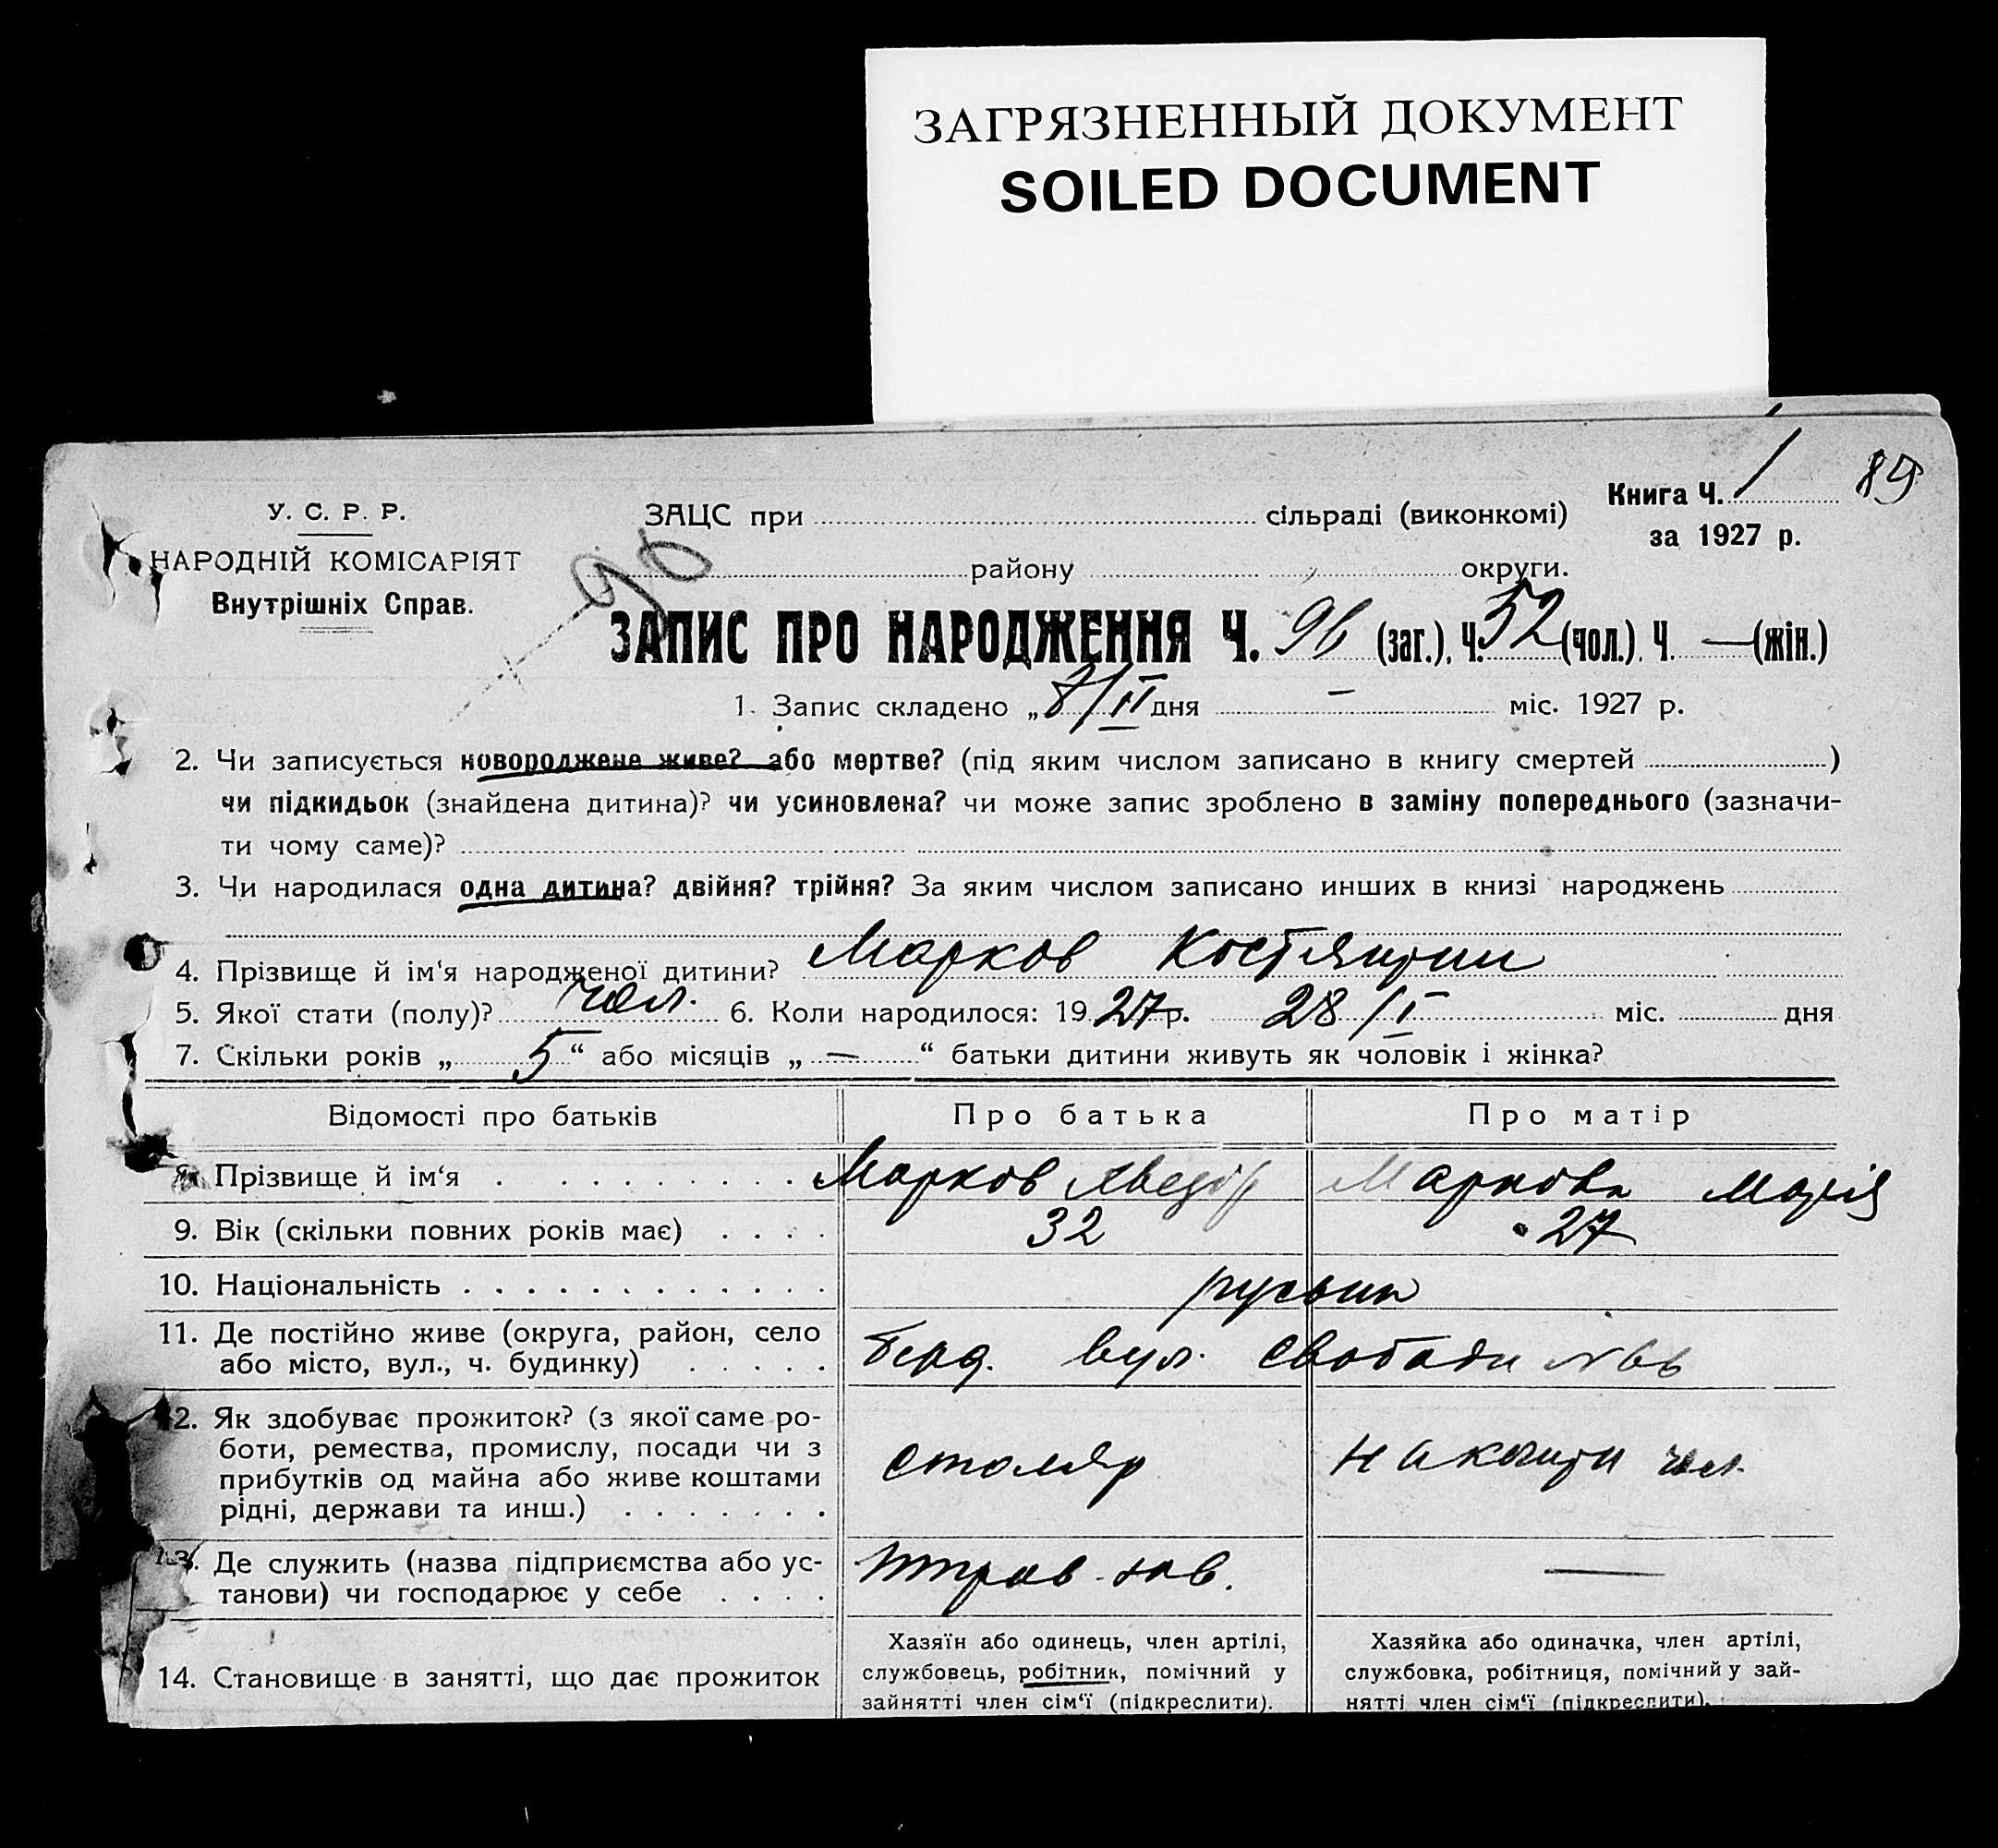 ЗАГРЯЗНЕННЫЙ ДОКУМЕНТ
SOILED DOCUMENT
Книга Ч. 1
89
за 1927 р.
У. С. Р. Р.
НАРОДНІЙ КОМІСАРІЯТ
Внутрішніх Справ.
ЗАЦС при сільраді (виконкомі)
району округи.
90
ЗАПИС ПРО НАРОДЖЕННЯ Ч. 96 (заг.), Ч. 52 (чол.). Ч. — (жін.)
1. Запис складено „8/II дня — міс. 1927 р.
2. Чи записується новороджене живе? або мертве? (під яким числом записано в книгу смертей )
чи підкидьок (знайдена дитина)? чи усиновлена? чи може запис зроблено в заміну попереднього (зазначи-
ти чому саме)?
3. Чи народилася одна дитина? двійня? трійня? За яким числом записано инших в книзі народжень
4. Прізвище й ім‘я народженої дитини? Марков Костянтин
5. Якої стати (полу)? чол. 6. Коли народилося: 1927 р. 28/I міс. дня
7. Скільки років „ 5 “ або місяців „ — “ батьки дитини живуть як чоловік і жінка?
Відомості про батьків Про батька Про матір
Прізвище й ім‘я Марков Маркова Марія
9. Вік (скільки повних років має) 32 27
10. Національність
11. Де постійно живе (округа, район, село
або місто, вул., ч. будинку) Берд. вул. Свободи №66
12. Як здобуває прожиток? (з якої саме ро-
боти, ремества, промислу, посади чи з
прибутків од майна або живе коштами
рідні, держави та инш.)
столяр
на кошти чол.
13. Де служить (назва підприємства або ус-
танови) чи господарює у себе
зав. —
14. Становище в занятті, що дає прожиток
Хазяїн або одинець, член артілі,
службовець, робітник, помічний у
зайнятті член сім‘ї (підкреслити).
Хазяйка або одиначка, член артілі,
службовка, робітниця, помічний у зай-
нятті член сім‘ї (підкреслити).